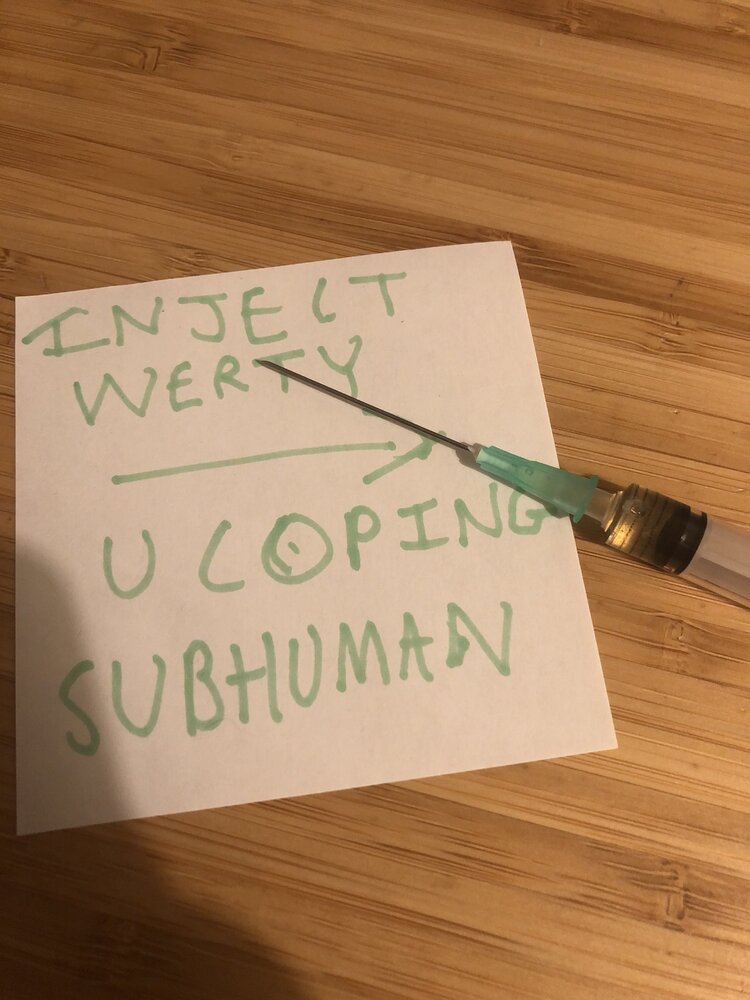 INJECT
WERTY
U COPING
SUBHUMAN